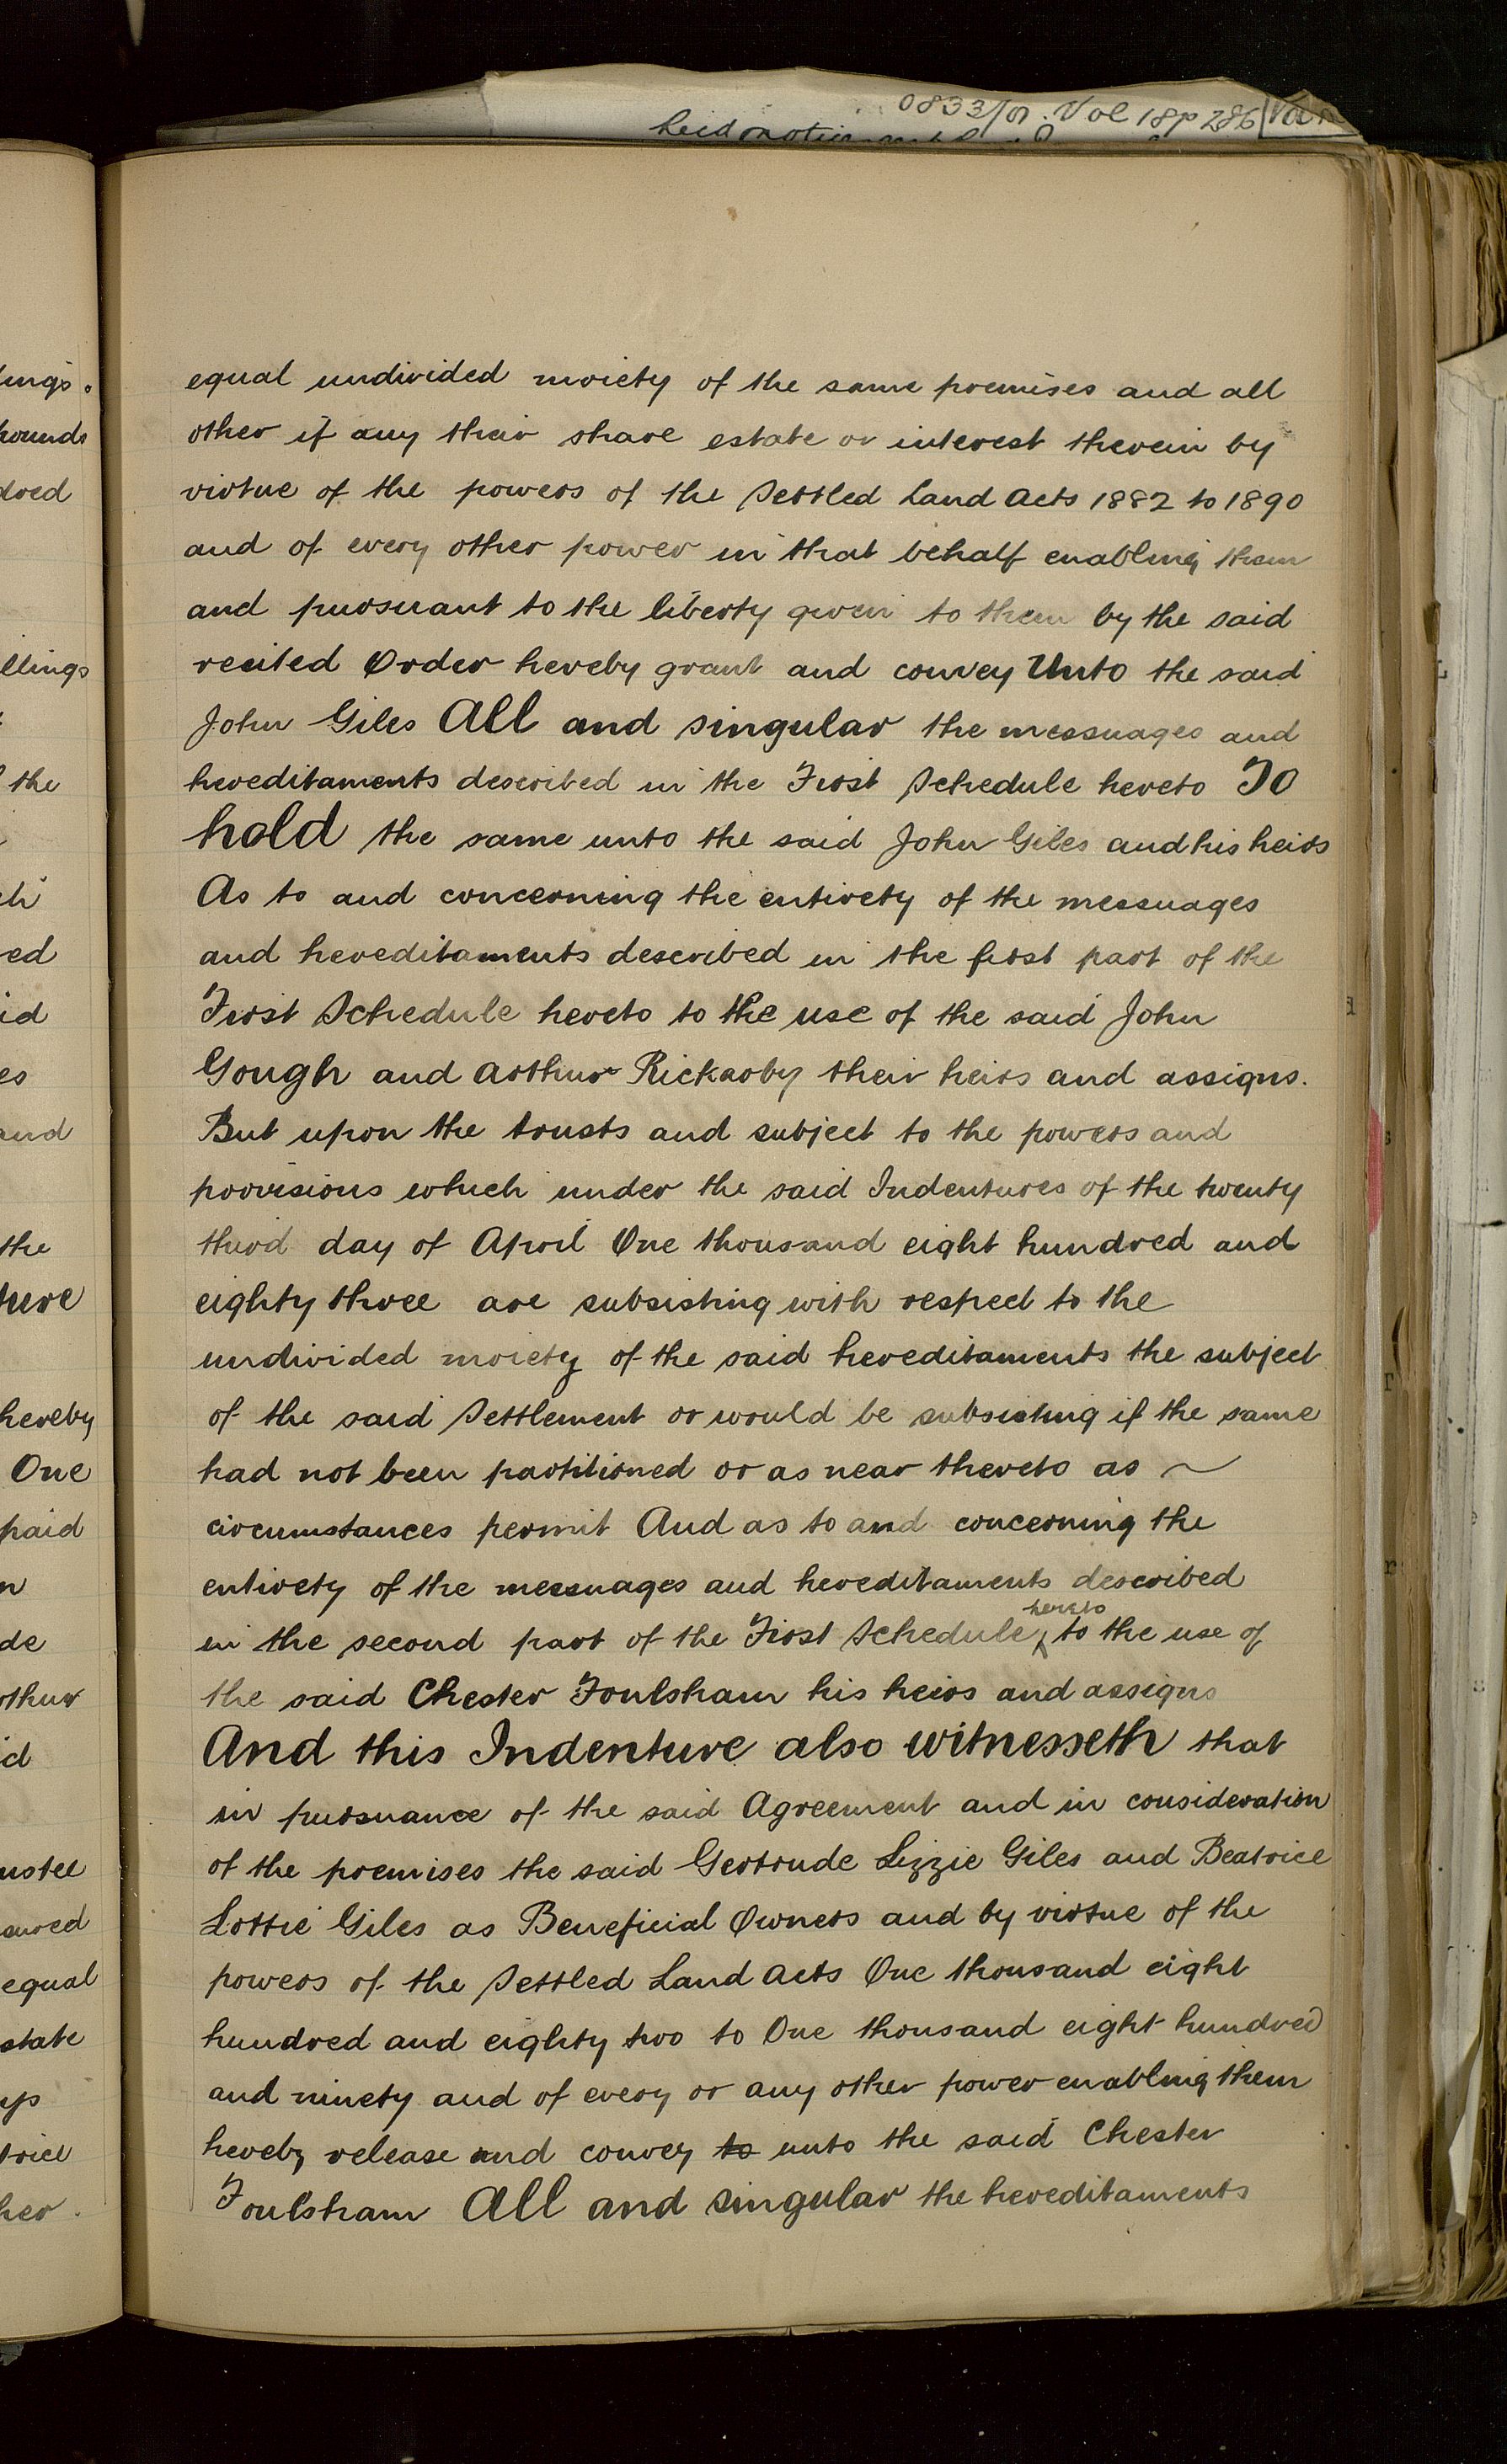 0833/01. Vol 18p 286
equal undivided moiety of the same premises and all
other if any their share estate or interest therein by
virtue of the powers of the Settled Land Acts 1882 to 1890
and of every other power in that behalf enabling them
and pursuant to the liberty given to them by the said
recited Order hereby grant and convey Unto the said
John Giles All and singular the messuages and
hereditaments described in the First Schedule hereto To
hold the same unto the said John Giles and his heirs
As to and concerning the entirety of the messuages
and hereditaments described in the first part of the
First Schedule hereto to the use of the said John
Gough and Arthur Rickarby their heirs and assigns.
But upon the trusts and subject to the powers and
provisions which under the said Indentures of the twenty
third day of April One thousand eight hundred and
eighty three are subsisting with respect to the
undivided moiety of the said hereditaments the subject
of the said Settlement or would be subsisting if the same
had not been partitioned or as near thereto as ~
circumstances permit And as to and concerning the
entirety of the messuages and hereditaments described
in the second part of the First Schedule hereto to the use of
the said Chester Foulsham his heirs and assigns
And this Indenture also witnesseth that
in pursuance of the said Agreement and in consideration
of the premises the said Gertrude Lizzie Giles and Beatrice
Lottie Giles as Beneficial Owners and by virtue of the
powers of the Settled Land Acts One thousand eight
hundred and eighty two to One thousand eight hundred
and ninety and of every or any other power enabling them
hereby release and convey to unto the said Chester
Foulsham All and singular the hereditaments